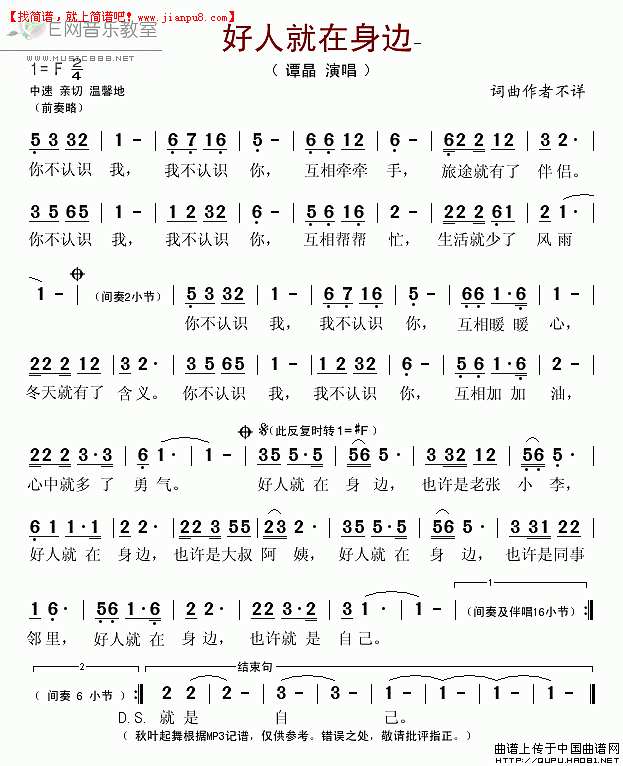 【找简谱,就上简谱吧】www.jianpu8.com
E网音乐教室
WWW.MUSIC888.NET
好人就在身边
1=F 2/4
(谭晶 演唱)
中速 亲切 温馨地
词曲作者不详
(前奏略)
5 3 32 | 1 - | 6 7 16 | 5 - | 6 6 16 | 2 - | 62 2 12 | 3 2· |
你不认识我, 我不认识 你, 互相牵牵 手, 旅途就有了 伴侣。
3 5 65 | 1 - | 1 2 32 | 6 - | 5 6 16 | 2 - | 22 2 61 | 2 1· |
你不认识 我, 我不认识 你, 互相帮帮 忙, 生活就少了 风雨
1 - | (间奏2小节) | 5 3 32 | 1 - | 6 7 16 | 5 - | 66 1·6 | 2 - |
你不认识 我, 我不认识 你, 互相暖 暖 心,
22 2 12 | 3 2· | 3 5 65 | 1 - | 1 2 32 | 6 - | 56 1·6 | 2 - |
冬天就有了 含义。你不认识 我, 我不认识 你, 互相加 加 油,
(此反复时转1=#F)
22 2 3·3 | 6 1· | 1 - | 35 5·5 | 56 5· | 3 32 12 | 56 5· |
心中就多 了 勇气。 好人就 在 身 边, 也许是老张 小 李,
6 1 1·1 | 2 2· | 22 3 55 | 23 2· | 35 5·5 | 56 5· | 3 31 22 |
好人就 在 身边, 也许是大叔 阿 姨, 好人就 在 身 边, 也许是同事
1
1 6· | 56 1·6 | 2 2· | 32 2 12 | 3 1· | 1 - | (间奏及伴唱16小节) :||
邻里, 好人就 在 身边, 也许就 是 自己。
2
结束句
( 间奏 6 小节 ) :|| 2 2 | 2 - | 3 - | 3 - | 1 - | 1 - ||
D.S. 就 是 自 己。
(秋叶起舞根据MP3记谱,仅供参考。错误之处,敬请批评指正。)
曲谱上传于中国曲谱网
http://QUPU.HAO81.NET